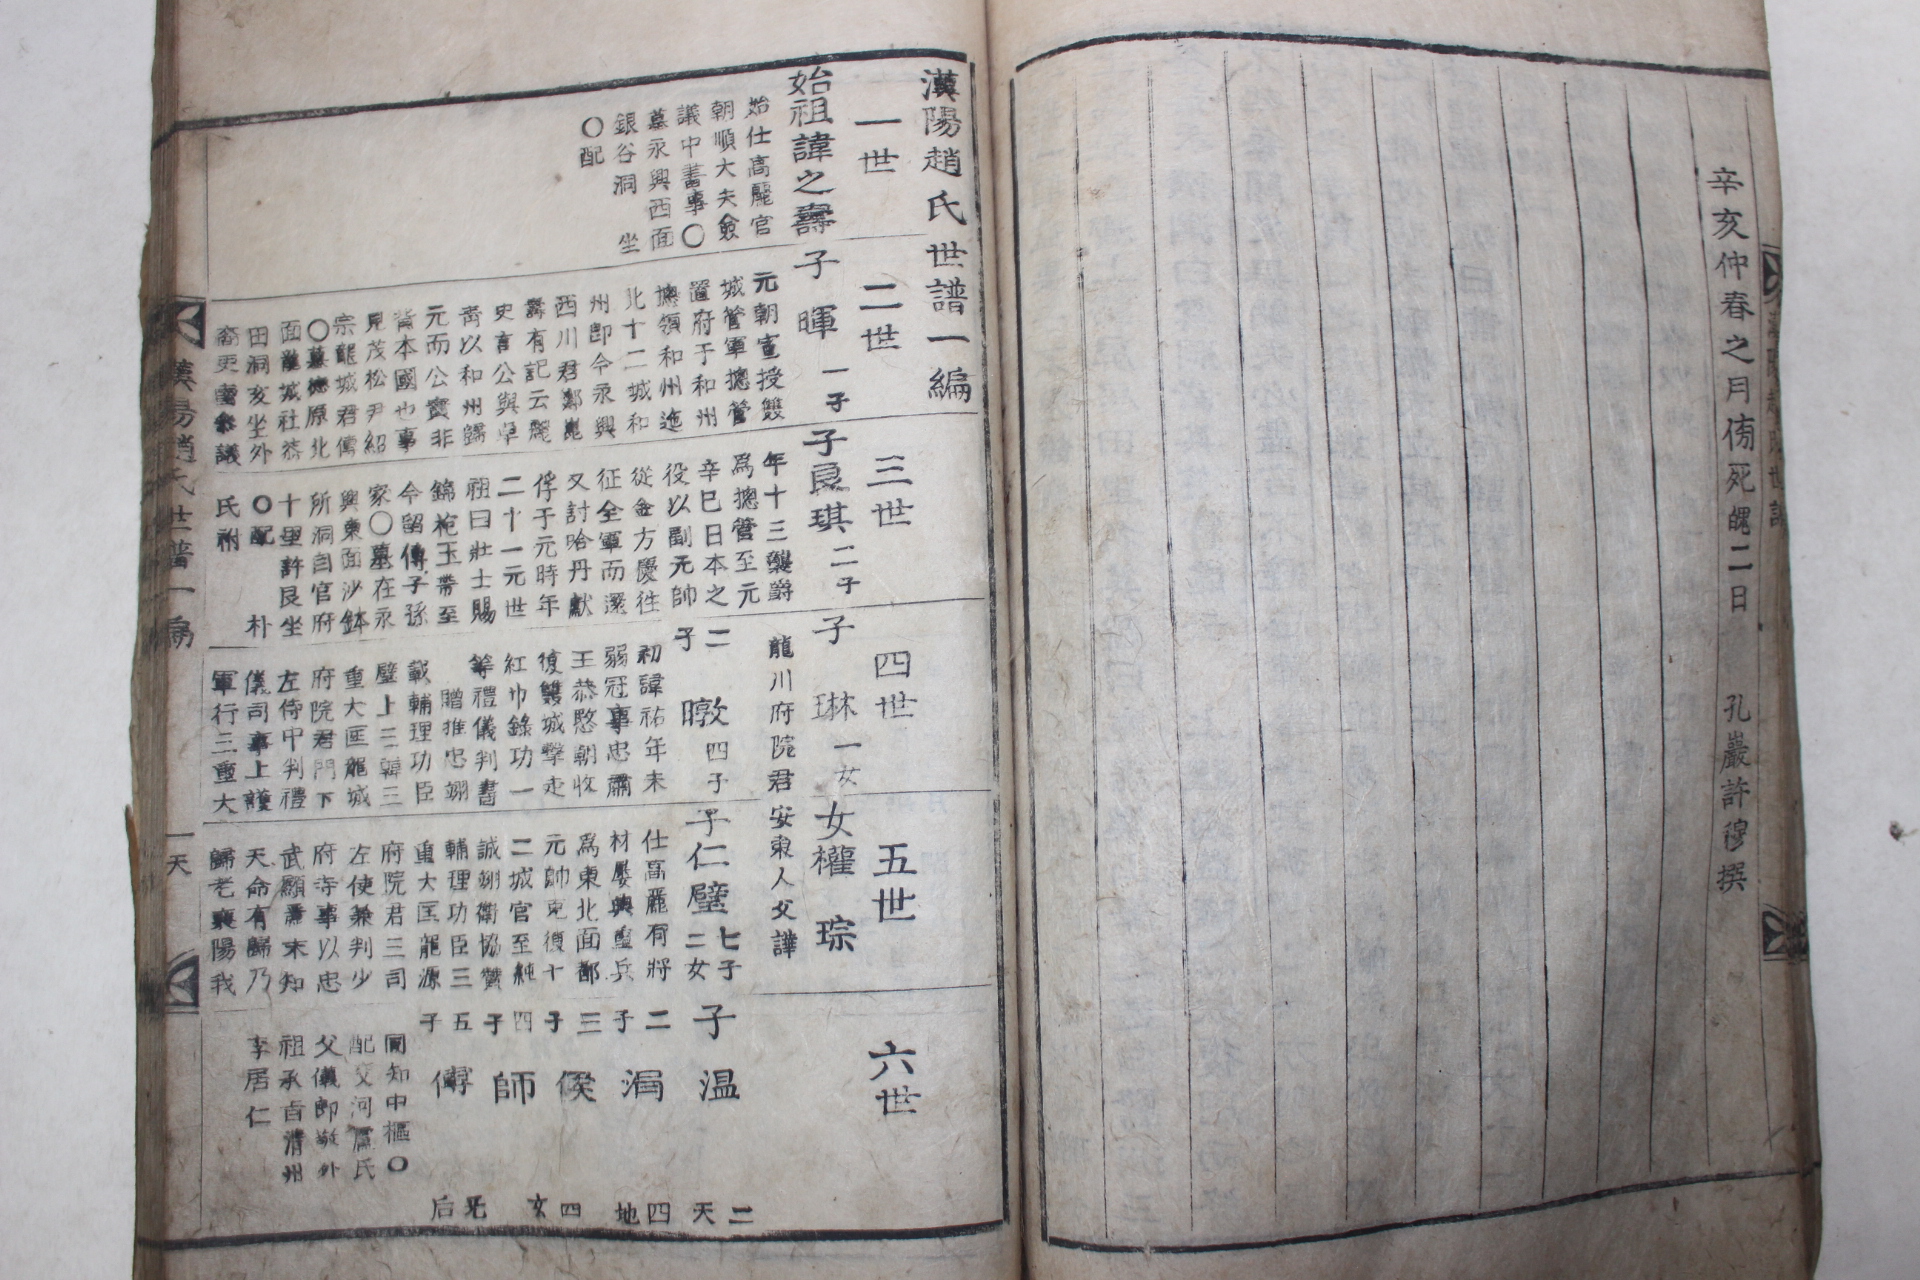 辛亥仲春之月傍死魄二日 孔巖許穆撰
漢陽趙氏世譜一編
一世
二世
三世
四世
五世
六世
始祖諱之壽
始仕高麗官
朝順大夫僉
議中書事〇
墓永興西面
銀谷洞 坐
〇配
子 暉 一子
元朝宣授雙
城管軍摠管
置府于和州
摠領和州迤
北十二城和
州卽今永興
西川君鄭崑
壽有記云麗
史言公與卓
靑以和州歸
元而公實非
背本國也事
見茂松尹紹
宗龍城君傳
〇墓德原北
面龍城社葛
田洞亥坐外
裔吏曹參議
子良琪 二子
年十三襲爵
爲摠管至元
辛巳日本之
役以副元帥
從金方慶往
征全軍而還
又討哈丹獻
俘于元時年
二十一元世
祖曰壯士賜
錦袍玉帶至
今留傳子孫
家〇墓在永
興東面沙鉢
所洞自官府
十里許艮坐
〇配 朴
氏祔
子 琳 一女
龍川府院君
二子 暾 四子
初諱祐年未
弱冠事忠肅
王恭愍朝收
復雙城擊走
紅巾錄功一
等禮儀判書
贈推忠翊
戴輔理功臣
壁上三韓三
重大匡龍城
府院君門下
左侍中判禮
儀司事上護
軍行三重大
女權 琮
安東人父譁
子仁璧 七子二女
仕高麗有將
材屢典重兵
爲東北面都
元帥克復十
二城官至純
誠翊衛協贊
輔理功臣三
重大匡龍源
府院君三司
左使兼判少
府寺事以忠
武顯肅末知
天命有歸乃
歸老襄陽我
子 温
二子 涓
三子 候
四子 師
五子 傅
同知中樞〇
配交河盧氏
父儀郎敬外
祖承旨淸州
李居仁
二天 四地 四女 兂后
漢陽趙氏世譜一編
一天